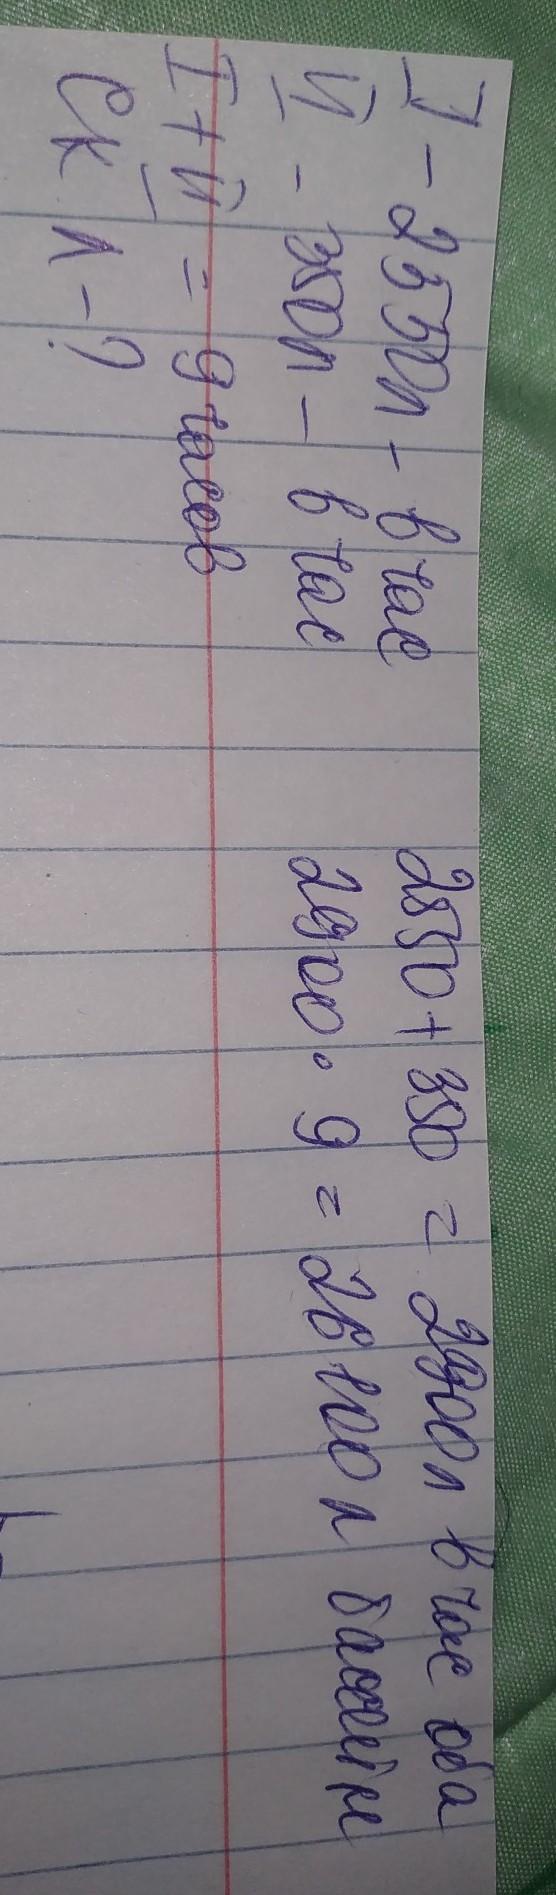 I - 2550л - в час
II - 350л - в час
I + II = 9 часов
Ск л - ?
2550 + 350 = 2900 л в час оба
2900 · 9 = 26100 л бассейне